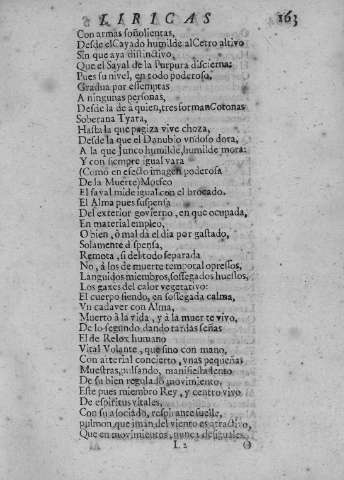 LIRICAS 163
Con armas soñolientas,
Desde el Cayado humilde al Cetro altivo
Sin que aya distinctivo,
Que el Sayal de la Purpura discierna:
Pues su nivel, en todo poderoso,
Gradua por essemptas
A ningunas personas,
Desde la de a quien, tres forman Coronas
Soberana Tyara,
Hasta la que pagiza vive choza,
Desde la que el Danubio vndoso dora,
A la que Junco humilde, humilde mora:
Y con siempre igual vara
(Como en efecto imagen poderosa
De la Muerte) Morfeo
El sayal mide igual con el brocado.
El Alma pues suspensa
Del exterior govierno, en que ocupada,
En material empleo,
O bien, ò mal dà el dia por gastado,
Solamente dispensa,
Remota, si del todo separada
No, à los de muerte temporal opressos,
Languidos miembros, sossegados huessos,
Los gaxes del calor vegetativo:
El cuerpo siendo, en sossegada calma,
Vn cadaver con Alma,
Muerto à la vida, y à la muerte vivo,
De lo segundo dando tardas señas
El de Relox humano
Vital Volante, que sino con mano,
Con arterial concierto, vnas pequeñas
Muestras, pulsando, manifiesta lento
De su bien regulado movimiento,
Este pues miembro Rey, y centro vivo
De espiritus vitales,
Con su asociado, respirante fuelle,
pulmon, que iman del viento es atractivo,
Que en movimientos, nunca desiguales,
L 2 O